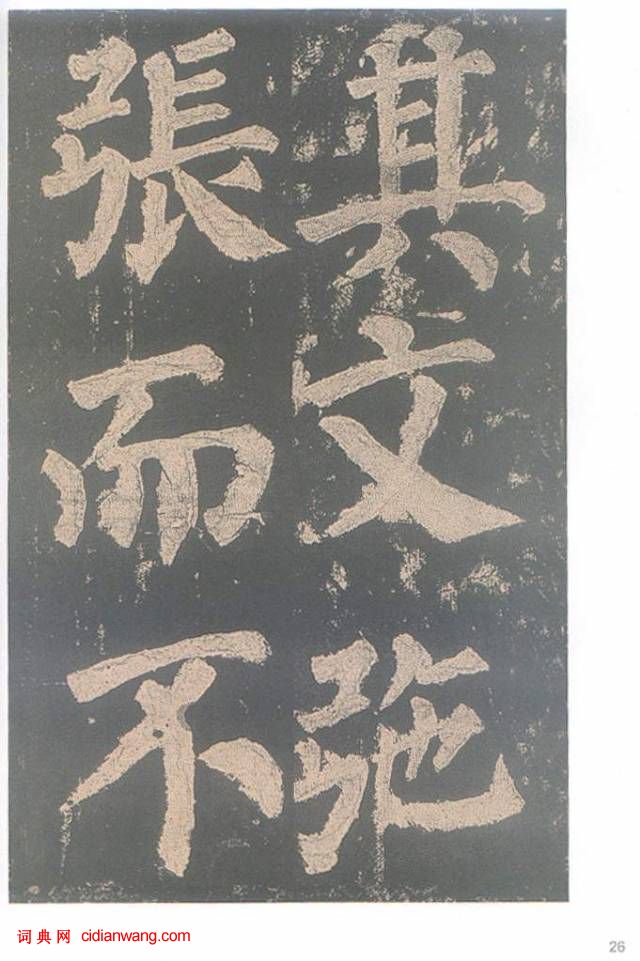 其文㢮
張而不
词典网 cidianwang.com
26